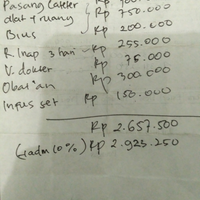 Pasang Cateler Rp
alat + ruang Rp 750.000
Bius Rp 200.000
R. Inap 3 hari Rp 255.000
V. dokter Rp 75.000
Obat"an Rp 300.000
Inpus set Rp 150.000
Rp 2.657.500
(+adm 10%) Rp 2.923.250